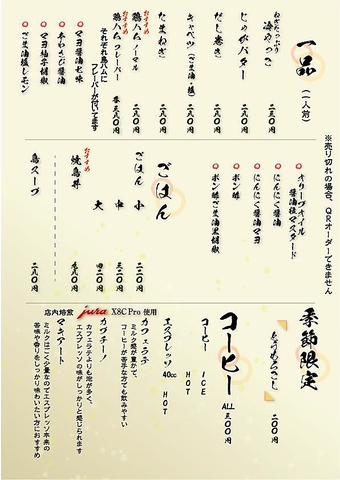 一品（一人前）
ねぎたっぷり
冷やっこ 二五〇円
じゃがバター 三五〇円
だし巻き 三五〇円
キャベツ（ごま油・塩） 二五〇円
たまねぎ 二五〇円
おすすめ
鶏ハム ノーマル 三五〇円
おすすめ
鶏ハム フレーバー 各 三五〇円
それぞれ鳥ハムに
フレーバーが付いてます
マヨ醤油七味
本わさび醤油
マヨ柚子胡椒
ごま油塩レモン
オリーブオイル
醤油粒マスタード
にんにく醤油
にんにく醤油マヨ
ポン酢
ポン酢ごま油黒胡椒
※売り切れの場合、QRオーダーできません
ごはん
ごはん 小
中
大
おすすめ
焼鳥丼
鳥スープ
季節限定
二〇〇円
コーヒー
ALL 三〇〇円
コーヒー ICE
HOT
エスプレッソ 40cc HOT
カフェラテ
ミルク感が豊かで、
コーヒーが苦手な方でも飲みやすい
カプチーノ
カフェラテよりも泡が多く、
エスプレッソの味がしっかりと感じられます
マキアート
ミルクはごく少量なのでエスプレッソ本来の
苦味や香りをしっかり味わいたい方におすすめ
店内焙煎 jura X8C Pro 使用